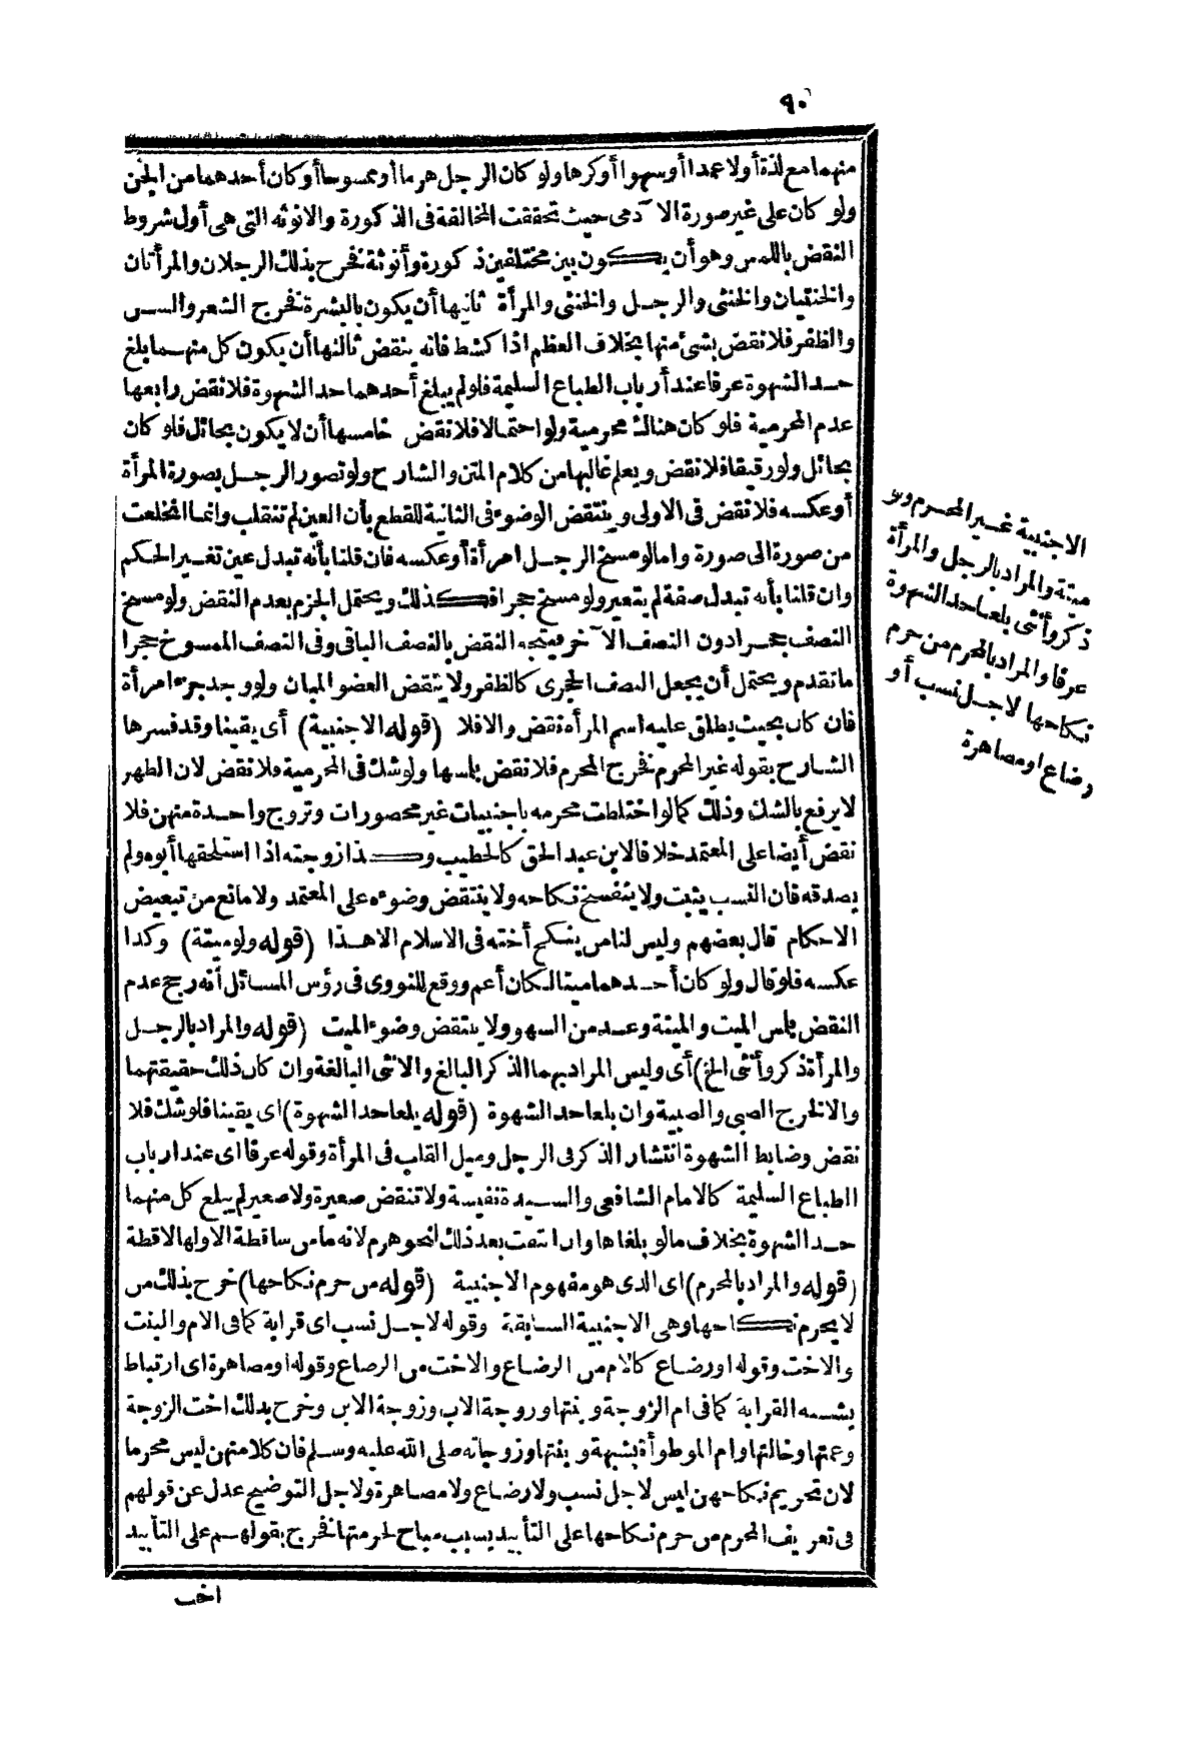 ٩٠
منهما مع لذة أولا عمدا أوسهوا أوكرها ولو كان الرجل هرما أو ممسوحا أو كان أحدهما من الجن
ولو كان على غير صورة الآدمى حيث تحققت المخالفة فى الذكورة والانوثه التى هى أول شروط
النقض باللمس وهو أن يكون بين مختلفين ذكورة وأنوثة فخرج بذلك الرجلان والمرأتان
والخنثيان والخنثى والرجل والخنثى والمرأة ثانيها أن يكون بالبشرة فخرج الشعر والسن
والظفر فلا نقض بشئ منها بخلاف العظم اذا كشط فانه ينقض ثالثها أن يكون كل منهما بلغ
حد الشهوة عرفا عند أرباب الطباع السليمة فلو لم يبلغ أحدهما حد الشهوة فلا نقض رابعها
عدم المحرمية فلو كان هناك محرمية ولو احتمالا فلا نقض خامسها أن لا يكون بحائل فلو كان
بحائل ولو رقيقا فلا نقض ويعلم غالبها من كلام المتن والشارح ولو تصور الرجل بصورة المرأة
أو عكسه فلا نقض فى الاولى وينتقض الوضوء فى الثانية للقطع بأن العين لم تنقلب وانما انخلعت
من صورة الى صورة واما لو مسخ الرجل امرأة أو عكسه فان قلنا بأنه تبدل عين تغير الحكم
وان قلنا بأنه تبدل صفة لم يتغير ولو مسخ حجرا فكذلك ويحتمل الجزم بعدم النقض ولو مسخ
النصف حجرا دون النصف الآخر فيتجه النقض بالنصف الباقى وفى النصف الممسوخ حجرا
ما تقدم ويحتمل أن يجعل النصف الحجرى كالظفر ولا ينقض العضو المبان ولو وجد جزء امرأة
فان كان بحيث يطلق عليه اسم المرأة نقض والا فلا (قوله الاجنبية) أى يقينا وقد فسرها
الشارح بقوله غير المحرم فخرج المحرم فلا نقض بلمسها ولو شك فى المحرمية فلا نقض لان الطهر
لا يرفع بالشك وذلك كما لو اختلطت محرمه باجنبيات غير محصورات وتزوج واحدة منهن فلا
نقض أيضا على المعتمد خلافا لابن عبد الحق كالخطيب وكذا زوجته اذا استلحقها أبوه ولم
يصدقه فان النسب يثبت ولا ينفسخ نكاحه ولا ينتقض وضوءه على المعتمد ولا مانع من تبعيض
الاحكام قال بعضهم وليس لنا من ينكح أخته فى الاسلام الا هذا (قوله ولو ميتة) وكذا
عكسه فلو قال ولو كان أحدهما ميتا لكان أعم ووقع للنووى فى رؤس المسائل أنه رجح عدم
النقض بلمس الميت والميتة وعد من السهو ولا ينتقض وضوء الميت (قوله والمراد بالرجل
والمرأة ذكر وأنثى الخ) أى وليس المراد بهما الذكر البالغ والانثى البالغة وان كان ذلك حقيقتهما
والا لخرج الصبى والصبية وان بلغا حد الشهوة (قوله بلغا حد الشهوة) اى يقينا فلو شك فلا
نقض وضابط الشهوة انتشار الذكر فى الرجل وميل القلب فى المرأة وقوله عرفا اى عند ارباب
الطباع السليمة كالامام الشافعى والسيدة نفيسة ولا تنقض صغيرة ولا صغير لم يبلغ كل منهما
حد الشهوة بخلاف ما لو بلغاها وان انتفت بعد ذلك لنحو هرم لانه ما من ساقطة الا ولها لاقطة
(قوله والمراد بالمحرم) اى الذى هو مفهوم الاجنبية (قوله من حرم نكاحها) خرج بذلك من
لا يحرم نكاحها وهى الاجنبية السابقة وقوله لاجل نسب اى قرابة كما فى الام والبنت
والاخت وقوله او رضاع كالام من الرضاع والاخت من الرضاع وقوله او مصاهرة اى ارتباط
يشبه القرابة كما فى ام الزوجة وبنتها وزوجة الاب وزوجة الابن وخرج بذلك اخت الزوجة
وعمتها وخالتها وام الموطوأة بشبهة وبنتها وزوجاته صلى الله عليه وسلم فان كلا منهن ليس محرما
لان تحريم نكاحهن ليس لاجل نسب ولا رضاع ولا مصاهرة ولاجل التوضيح عدل عن قولهم
فى تعريف المحرم من حرم نكاحها على التأبيد بسبب مباح لحرمتها فخرج بقولهم على التأبيد
الاجنبية غير المحرم ولو
ميتة والمراد بالرجل والمرأة
ذكر وأنثى بلغا حد الشهوة
عرفا والمراد بالمحرم من حرم
نكاحها لاجل نسب أو
رضاع او مصاهرة
اخت